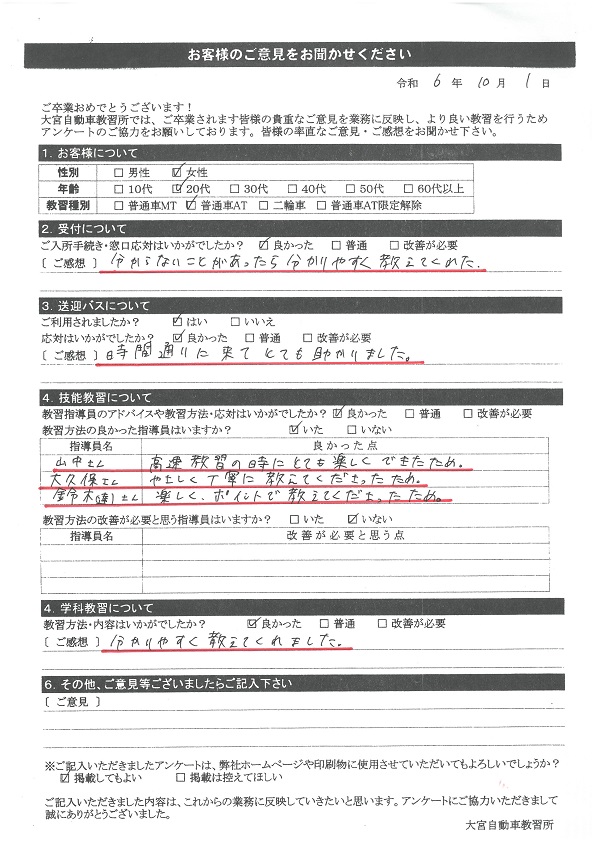 お客様のご意見をお聞かせください
令和 6 年 10 月 1 日
ご卒業おめでとうございます！
大宮自動車教習所では、ご卒業されます皆様の貴重なご意見を業務に反映し、より良い教習を行うため
アンケートのご協力をお願いしております。皆様の率直なご意見・ご感想をお聞かせ下さい。
1. お客様について
性別 □ 男性 ☑ 女性
年齢 □ 10代 ☑ 20代 □ 30代 □ 40代 □ 50代 □ 60代以上
教習種別 □ 普通車MT ☑ 普通車AT □ 二輪車 □ 普通車AT限定解除
2. 受付について
ご入所手続き・窓口応対はいかがでしたか？ ☑ 良かった □ 普通 □ 改善が必要
〔 ご感想 〕 分からないことがあったら分かりやすく教えてくれた.
3. 送迎バスについて
ご利用されましたか？ ☑ はい □ いいえ
応対はいかがでしたか？ ☑ 良かった □ 普通 □ 改善が必要
〔 ご感想 〕 時間通りに来てとても助かりました。
4. 技能教習について
教習指導員のアドバイスや教習方法・応対はいかがでしたか？ ☑ 良かった □ 普通 □ 改善が必要
教習方法の良かった指導員はいますか？ ☑ いた □ いない
指導員名 良かった点
山中さん 高速教習の時にとても楽しくできたため。
大久保さん やさしく丁寧に教えてくださったため。
鈴木(達)さん 楽しく、ポイントで教えてくださったため。
教習方法の改善が必要と思う指導員はいますか？ □ いた ☑ いない
指導員名 改善が必要と思う点
4. 学科教習について
教習方法・内容はいかがでしたか？ ☑ 良かった □ 普通 □ 改善が必要
〔 ご感想 〕 分かりやすく教えてくれました。
6. その他、ご意見等ございましたらご記入下さい
〔 ご意見 〕
※ご記入いただきましたアンケートは、弊社ホームページや印刷物に使用させていただいてもよろしいでしょうか？
☑ 掲載してもよい □ 掲載は控えてほしい
ご記入いただきました内容は、これからの業務に反映していきたいと思います。アンケートにご協力いただきまして
誠にありがとうございました。
大宮自動車教習所